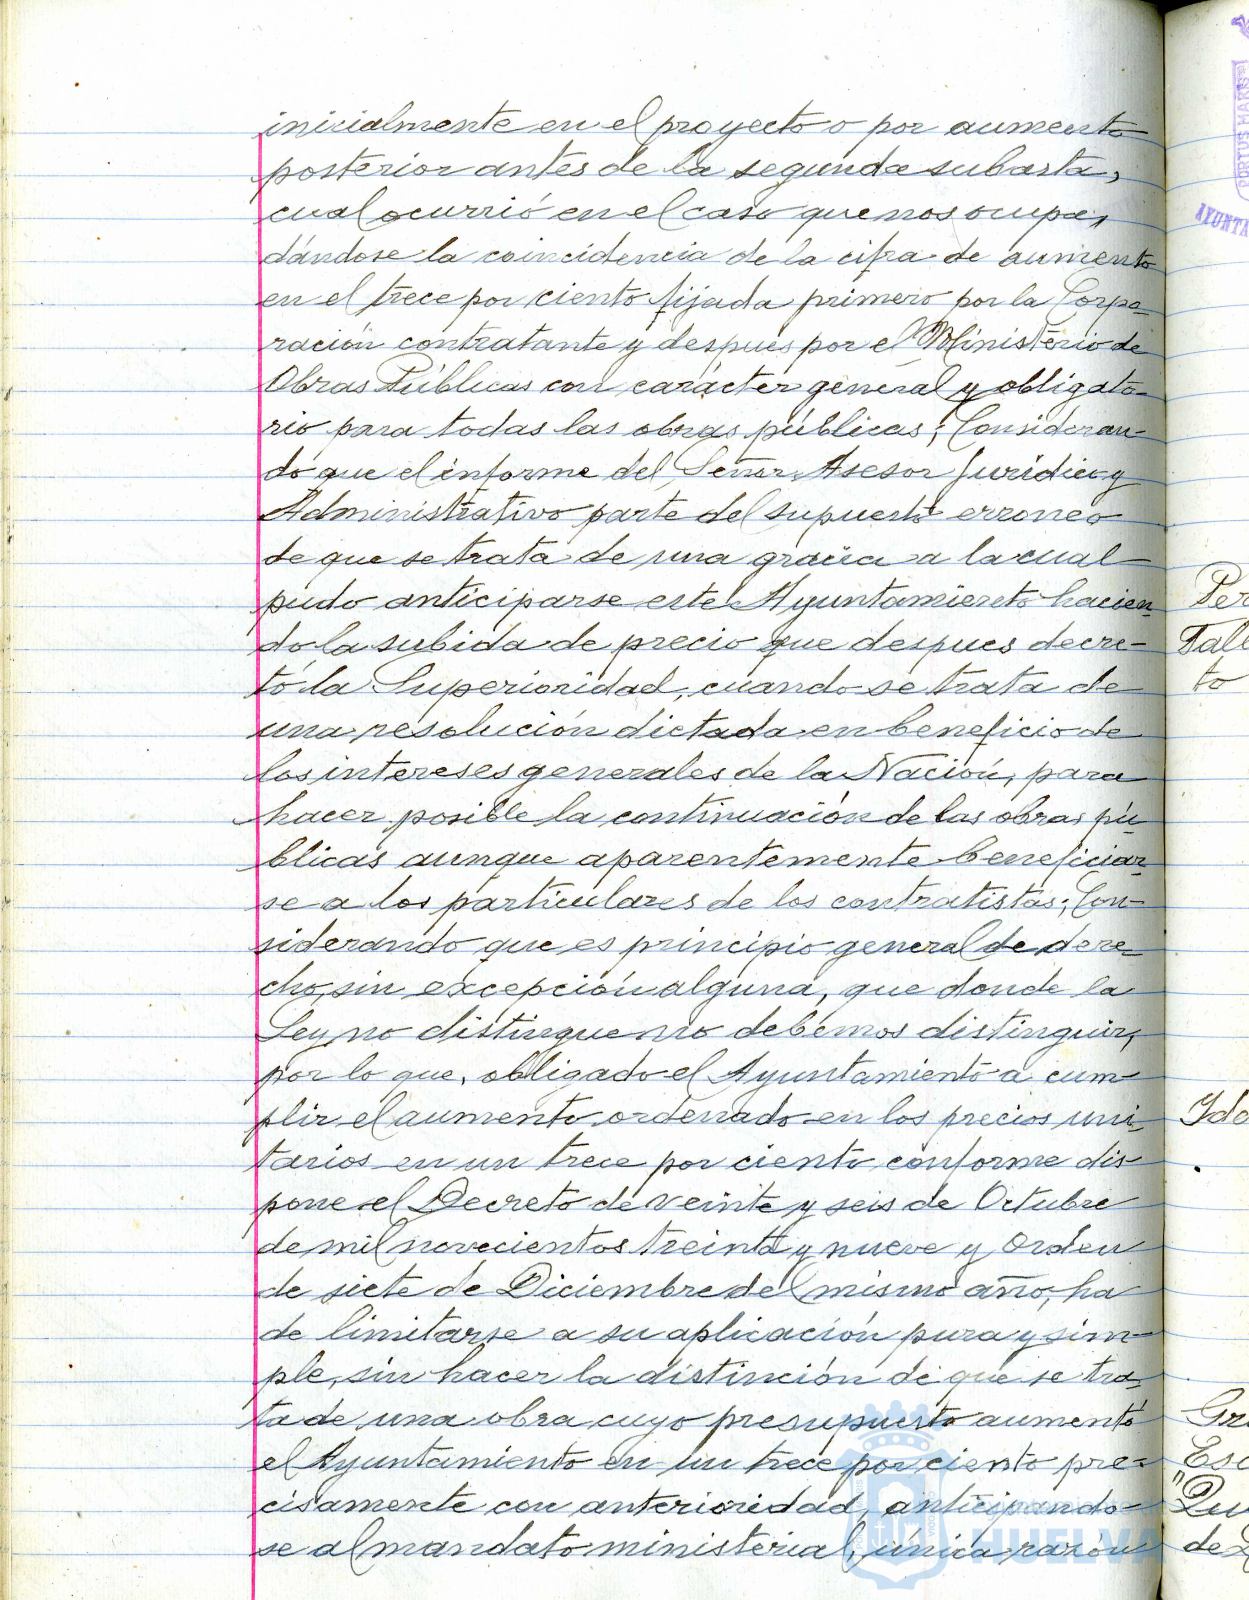 inicialmente en el proyecto o por aumento
posterior antes de la segunda subasta,
cual ocurrió en el caso que nos ocupa,
dándose la coincidencia de la cifra de aumento
en el trece por ciento fijada primero por la Corpo-
ración contratante y despues por el Ministerio de
Obras Públicas con carácter general y obligato-
rio para todas las obras públicas; Consideran-
do que el informe del Señor Asesor Juridico y
Administrativo parte del supuesto erroneo
de que se trata de una gracia a la cual
pudo anticiparse este Ayuntamiento hacien-
do la subida de precio que despues decre-
tó la Superioridad, cuando se trata de
una resolución dictada en beneficio de
los intereses generales de la Nación, para
hacer posible la continuación de las obras pú-
blicas aunque aparentemente beneficiar-
se a los particulares de los contratistas; Con-
siderando que es principio general de dere-
cho, sin excepción alguna, que donde la
Ley no distingue no debemos distinguir,
por lo que, obligado el Ayuntamiento a cum-
plir el aumento ordenado en los precios uni-
tarios en un trece por ciento conforme dis-
pone el Decreto de veinte y seis de Octubre
de mil novecientos treinta y nueve y Orden
de siete de Diciembre del mismo año, ha
de limitarse a su aplicación pura y sim-
ple, sin hacer la distinción de que se tra-
ta de una obra cuyo presupuesto aumentó
el Ayuntamiento en un trece por ciento pre-
cisamente con anterioridad, anticipando-
se al mandato ministerial, única razón
PORTUS MARIS
AYUNTA
Per
Tall
to
Ido
Gra
Esc
"Qu
de
HUELVA